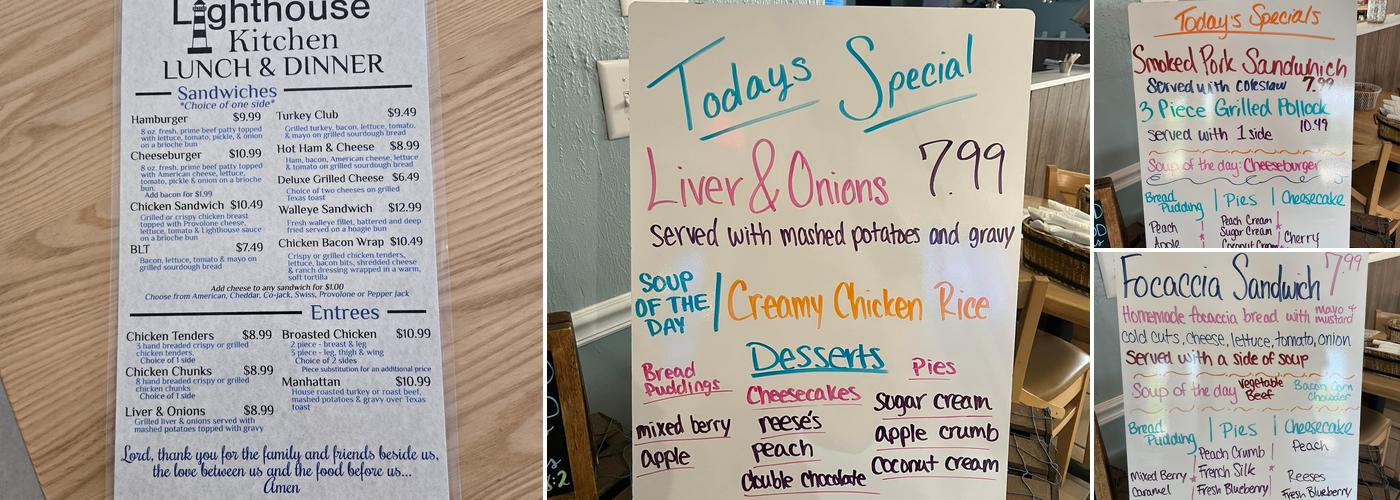 Lighthouse
Kitchen
LUNCH & DINNER
Sandwiches
*Choice of one side*
Hamburger $9.99
8 oz. fresh, prime beef patty topped
with lettuce, tomato, pickle, & onion
on a brioche bun
Cheeseburger $10.99
8 oz. fresh, prime beef patty topped
with American cheese, lettuce,
tomato, pickle & onion on a brioche
bun.
Add bacon for $1.99
Chicken Sandwich $10.49
Grilled or crispy chicken breast
topped with Provolone cheese,
lettuce, tomato & Lighthouse sauce
on a brioche bun
BLT $7.49
Bacon, lettuce, tomato & mayo on
grilled sourdough bread
Turkey Club $9.49
Grilled turkey, bacon, lettuce, tomato,
& mayo on grilled sourdough bread
Hot Ham & Cheese $8.99
Ham, bacon, American cheese, lettuce
& tomato on grilled sourdough bread
Deluxe Grilled Cheese $6.49
Choice of two cheeses on grilled
Texas toast
Walleye Sandwich $12.99
Fresh walleye fillet, battered and deep
fried served on a hoagie bun
Chicken Bacon Wrap $10.49
Crispy or grilled chicken tenders,
lettuce, bacon bits, shredded cheese
& ranch dressing wrapped in a warm,
soft tortilla
Add cheese to any sandwich for $1.00
Choose from American, Cheddar, Co-Jack, Swiss, Provolone or Pepper Jack
Entrees
Chicken Tenders $8.99
3 hand breaded crispy or grilled
chicken tenders.
Choice of 1 side
Chicken Chunks $8.99
8 hand breaded crispy or grilled
chicken chunks
Choice of 1 side
Liver & Onions $8.99
Grilled liver & onions served with
mashed potatoes topped with gravy
Broasted Chicken $10.99
2 piece - breast & leg
3 piece - leg, thigh & wing
Choice of 2 sides
Piece substitution for an additional price
Manhattan $10.99
House roasted turkey or roast beef,
mashed potatoes & gravy over Texas
toast
Lord, thank you for the family and friends beside us,
the love between us and the food before us...
Amen
Todays Special
Liver & Onions 7.99
Served with mashed potatoes and gravy
SOUP
OF THE
DAY / Creamy Chicken Rice
Desserts
Bread
Puddings
mixed berry
apple
Cheesecakes
reese's
peach
double chocolate
Pies
Sugar cream
apple crumb
Coconut cream
Today's Specials
Smoked Pork Sandwhich
Served with coleslaw 7.99
3 Piece Grilled Pollock
served with 1 side 10.49
Soup of the day: Cheeseburger
Bread
Pudding | Pies | Cheesecake
Peach
Apple
Peach Cream
Sugar Cream
Coconut Cream
Cherry
Focaccia Sandwich 7.99
Homemade focaccia bread with mayo +
mustard
cold cuts, cheese, lettuce, tomato, onion
Served with a side of soup
Soup of the day Vegetable
Beef
Bacon Corn
Chowder
Bread
Pudding | Pies | Cheesecake
Mixed Berry
Caramel
Peach Crumb
French Silk
Fresh Blueberry
Peach
Reeses
Fresh Blueberry